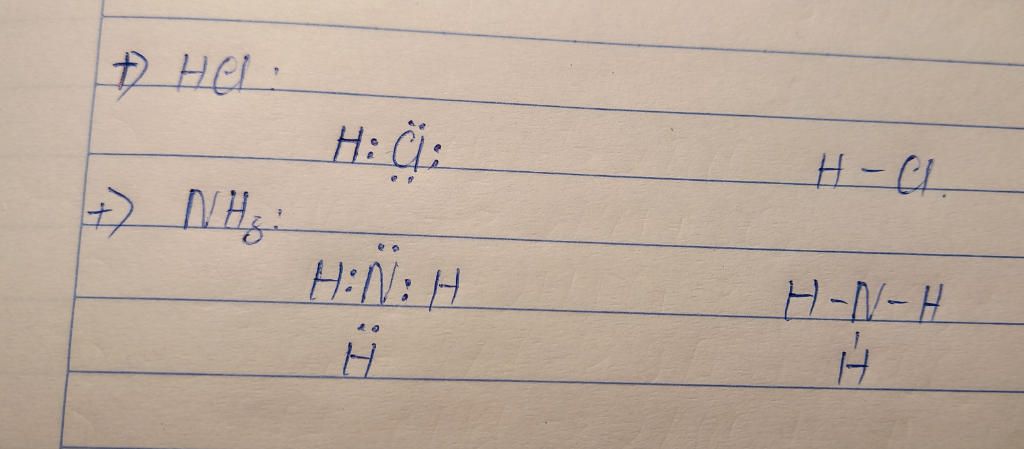 +) HCl :
H : C̤̈l :    H – Cl.
+) NH₃ :
H : N̈ : H    H – N – H
Ḧ    H